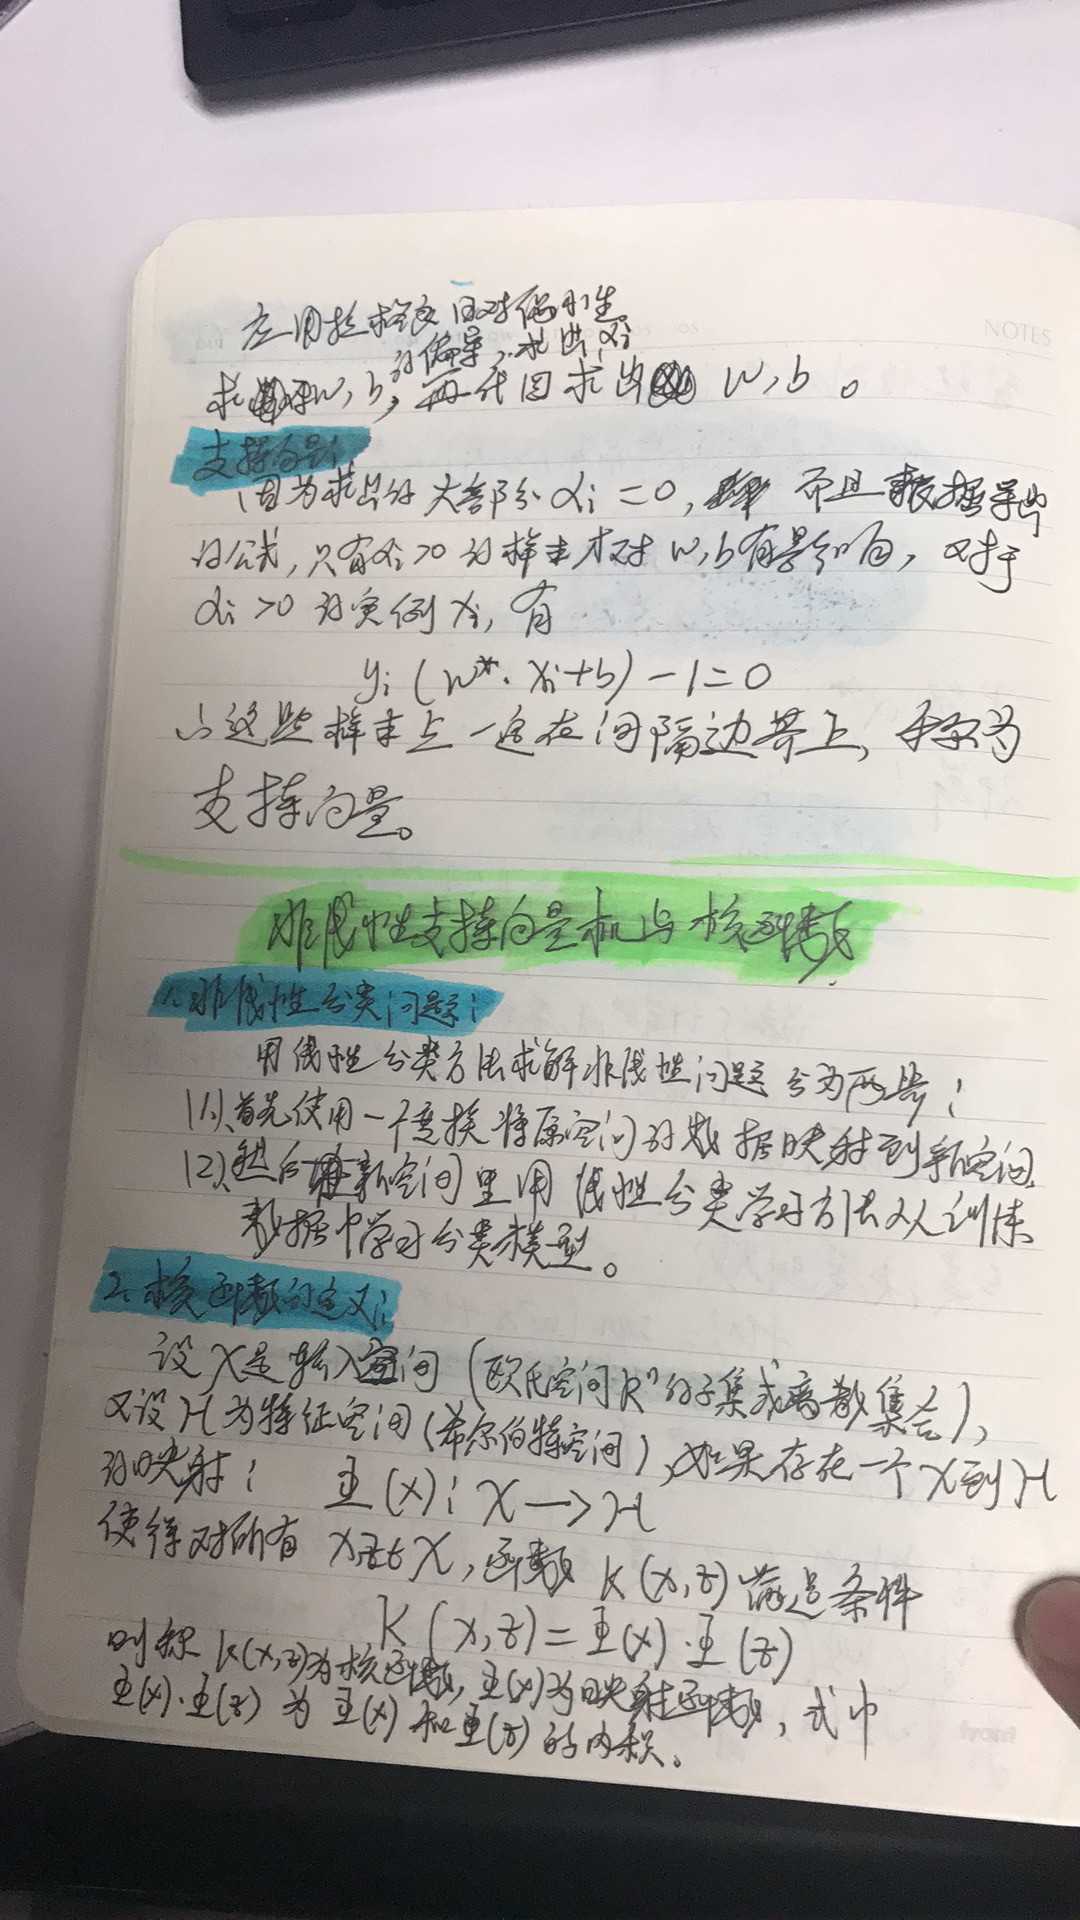 应用拉格朗日对偶性。
的偏导, 求出αi
求w, b, 再代回求出 w, b 。
支持向量:
因为求出的大部分αi=0, 而且根据导出
的公式, 只有αi>0的样本才对w,b有影响, 对于
αi>0的实例xi, 有
yi(w*·xi+b)-1=0
∴这些样本点一定在间隔边界上, 称为
支持向量。
非线性支持向量机与核函数
1、非线性分类问题:
用线性分类方法求解非线性问题分为两步:
(1)、首先使用一个变换将原空间的数据映射到新空间
(2)、然后在新空间里用线性分类学习方法从训练
数据中学习分类模型。
2、核函数的定义:
设X是输入空间(欧氏空间Rⁿ的子集或离散集合),
又设H为特征空间(希尔伯特空间), 如果存在一个X到H
的映射: Φ(x): X→H
使得对所有 x,z∈X, 函数 K(x,z)满足条件
K(x,z)=Φ(x)·Φ(z)
则称K(x,z)为核函数, Φ(x)为映射函数, 式中
Φ(x)·Φ(z) 为 Φ(x) 和Φ(z) 的内积。
NOTES